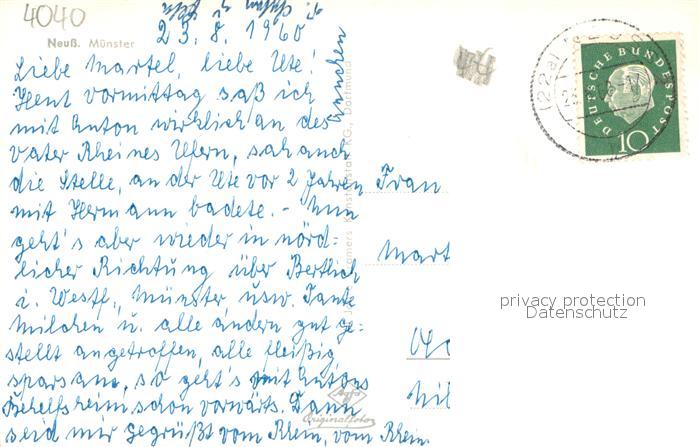 4040
23.8.1960
Neuß. Münster
Liebe Martel, liebe Ute!
Heut vormittag saß ich
mit Anton wirklich an des
Vater Rheines Ufern, sah auch
die Stelle, an der Ute vor 2 Jahren
mit Hermann badete. - Nun
geht's aber wieder in nörd-
licher Richtung über Bertlich
i. Westf., Münster usw. Tante
Milchen u. alle andern gut ge-
stellt angetroffen, alle fleißig
sparsam, so geht's mit Antons
Behelfsheim schon vorwärts. Dann
seid mir gegrüßt vom Rhein, vom Rhein
Annchen
Frau
Mart
DEUTSCHE BUNDESPOST
10
(22a)
privacy protection
Datenschutz
Agfa
Originalfoto